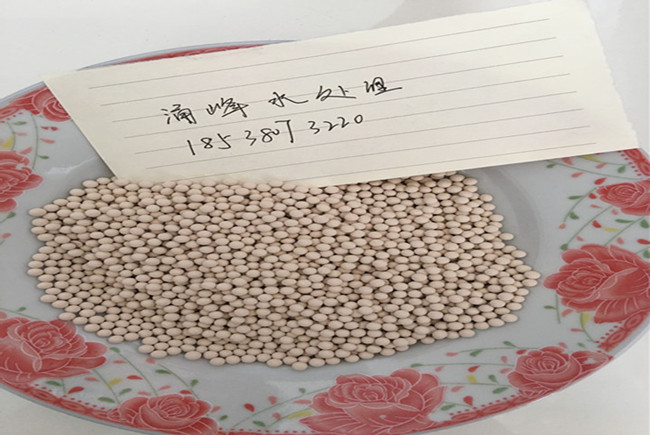 涌峰水处理
18538073220